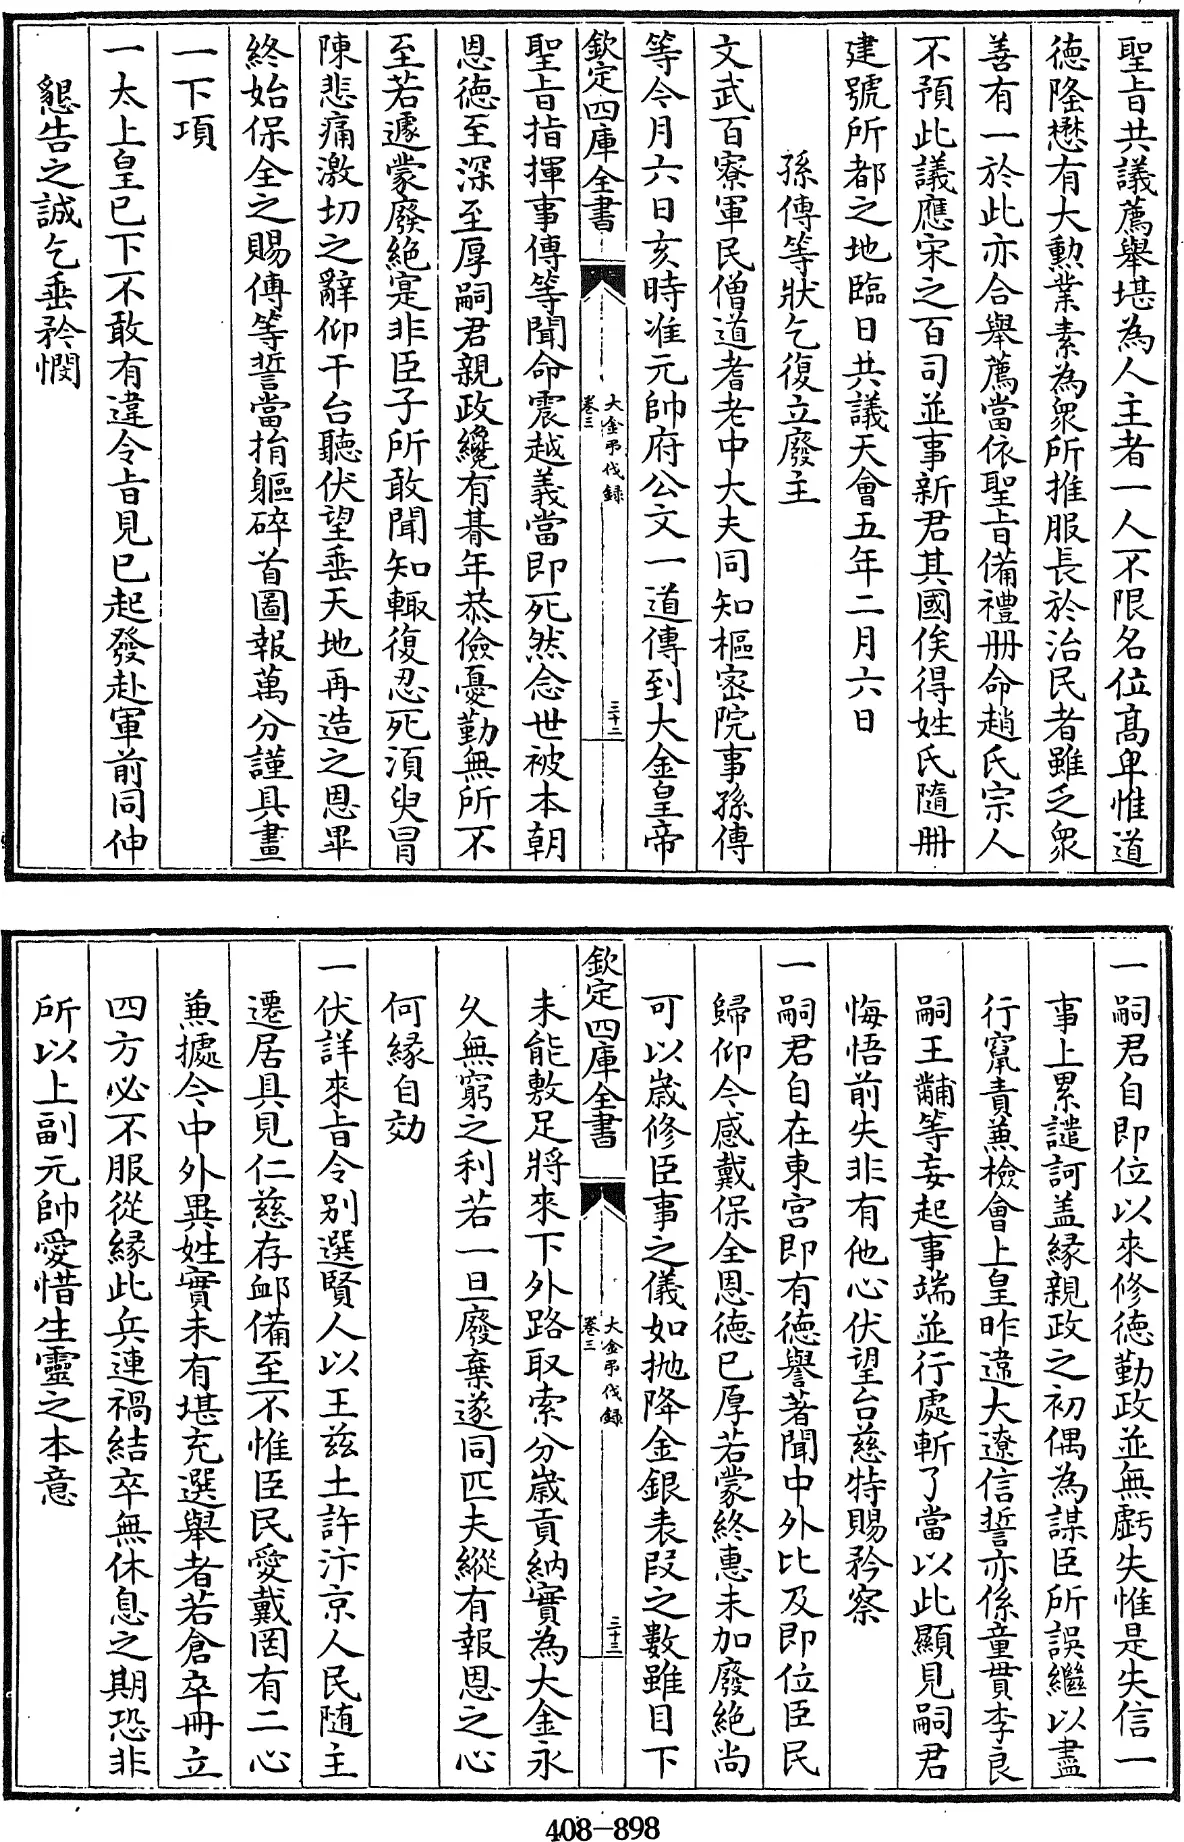 聖旨共議薦舉堪為人主者一人不限名位髙卑惟道
德隆懋有大勲業素為衆所推服長於治民者雖乏衆
善有一於此亦合舉薦當依聖旨備禮冊命趙氏宗人
不預此議應宋之百司並事新君其國俟得姓氏隨冊
建號所都之地臨日共議天會五年二月六日
孫傅等狀乞復立廢主
文武百寮軍民僧道耆老中大夫同知樞密院事孫傅
等今月六日亥時准元帥府公文一道傳到大金皇帝
欽定四庫全書
大金弔伐録
卷三
三十二
聖旨指揮事傅等聞命震越義當即死然念世被本朝
恩徳至深至厚嗣君親政纔有朞年恭儉憂勤無所不
至若遽蒙廢絶寔非臣子所敢聞知輙復忍死須臾冒
陳悲痛激切之辭仰干台聽伏望垂天地再造之恩畢
終始保全之賜傅等誓當捐軀碎首圖報萬分謹具畫
一下項
一太上皇已下不敢有違令旨見已起發赴軍前同伸
懇告之誠乞垂矜憫
一嗣君自即位以來修德勤政並無虧失惟是失信一
事上累譴訶盖緣親政之初偶為謀臣所誤繼以盡
行竄責兼檢會上皇昨違大遼信誓亦係童貫李良
嗣王黼等妄起事端並行處斬了當以此顯見嗣君
悔悟前失非有他心伏望台慈特賜矜察
一嗣君自在東宮即有徳譽著聞中外比及即位臣民
歸仰今感戴保全恩德已厚若蒙終惠未加廢絶尚
可以嵗修臣事之儀如抛降金銀表叚之數雖目下
欽定四庫全書
大金弔伐録
卷三
三十三
未能敷足將來下外路取索分嵗貢納實為大金永
久無窮之利若一旦廢棄遂同匹夫縱有報恩之心
何縁自効
一伏詳來旨令别選賢人以王兹土許汴京人民隨主
遷居具見仁慈存卹備至不惟臣民愛戴罔有二心
兼據今中外異姓實未有堪充選舉者若倉卒冊立
四方必不服從縁此兵連禍結卒無休息之期恐非
所以上副元帥愛惜生靈之本意
408-898